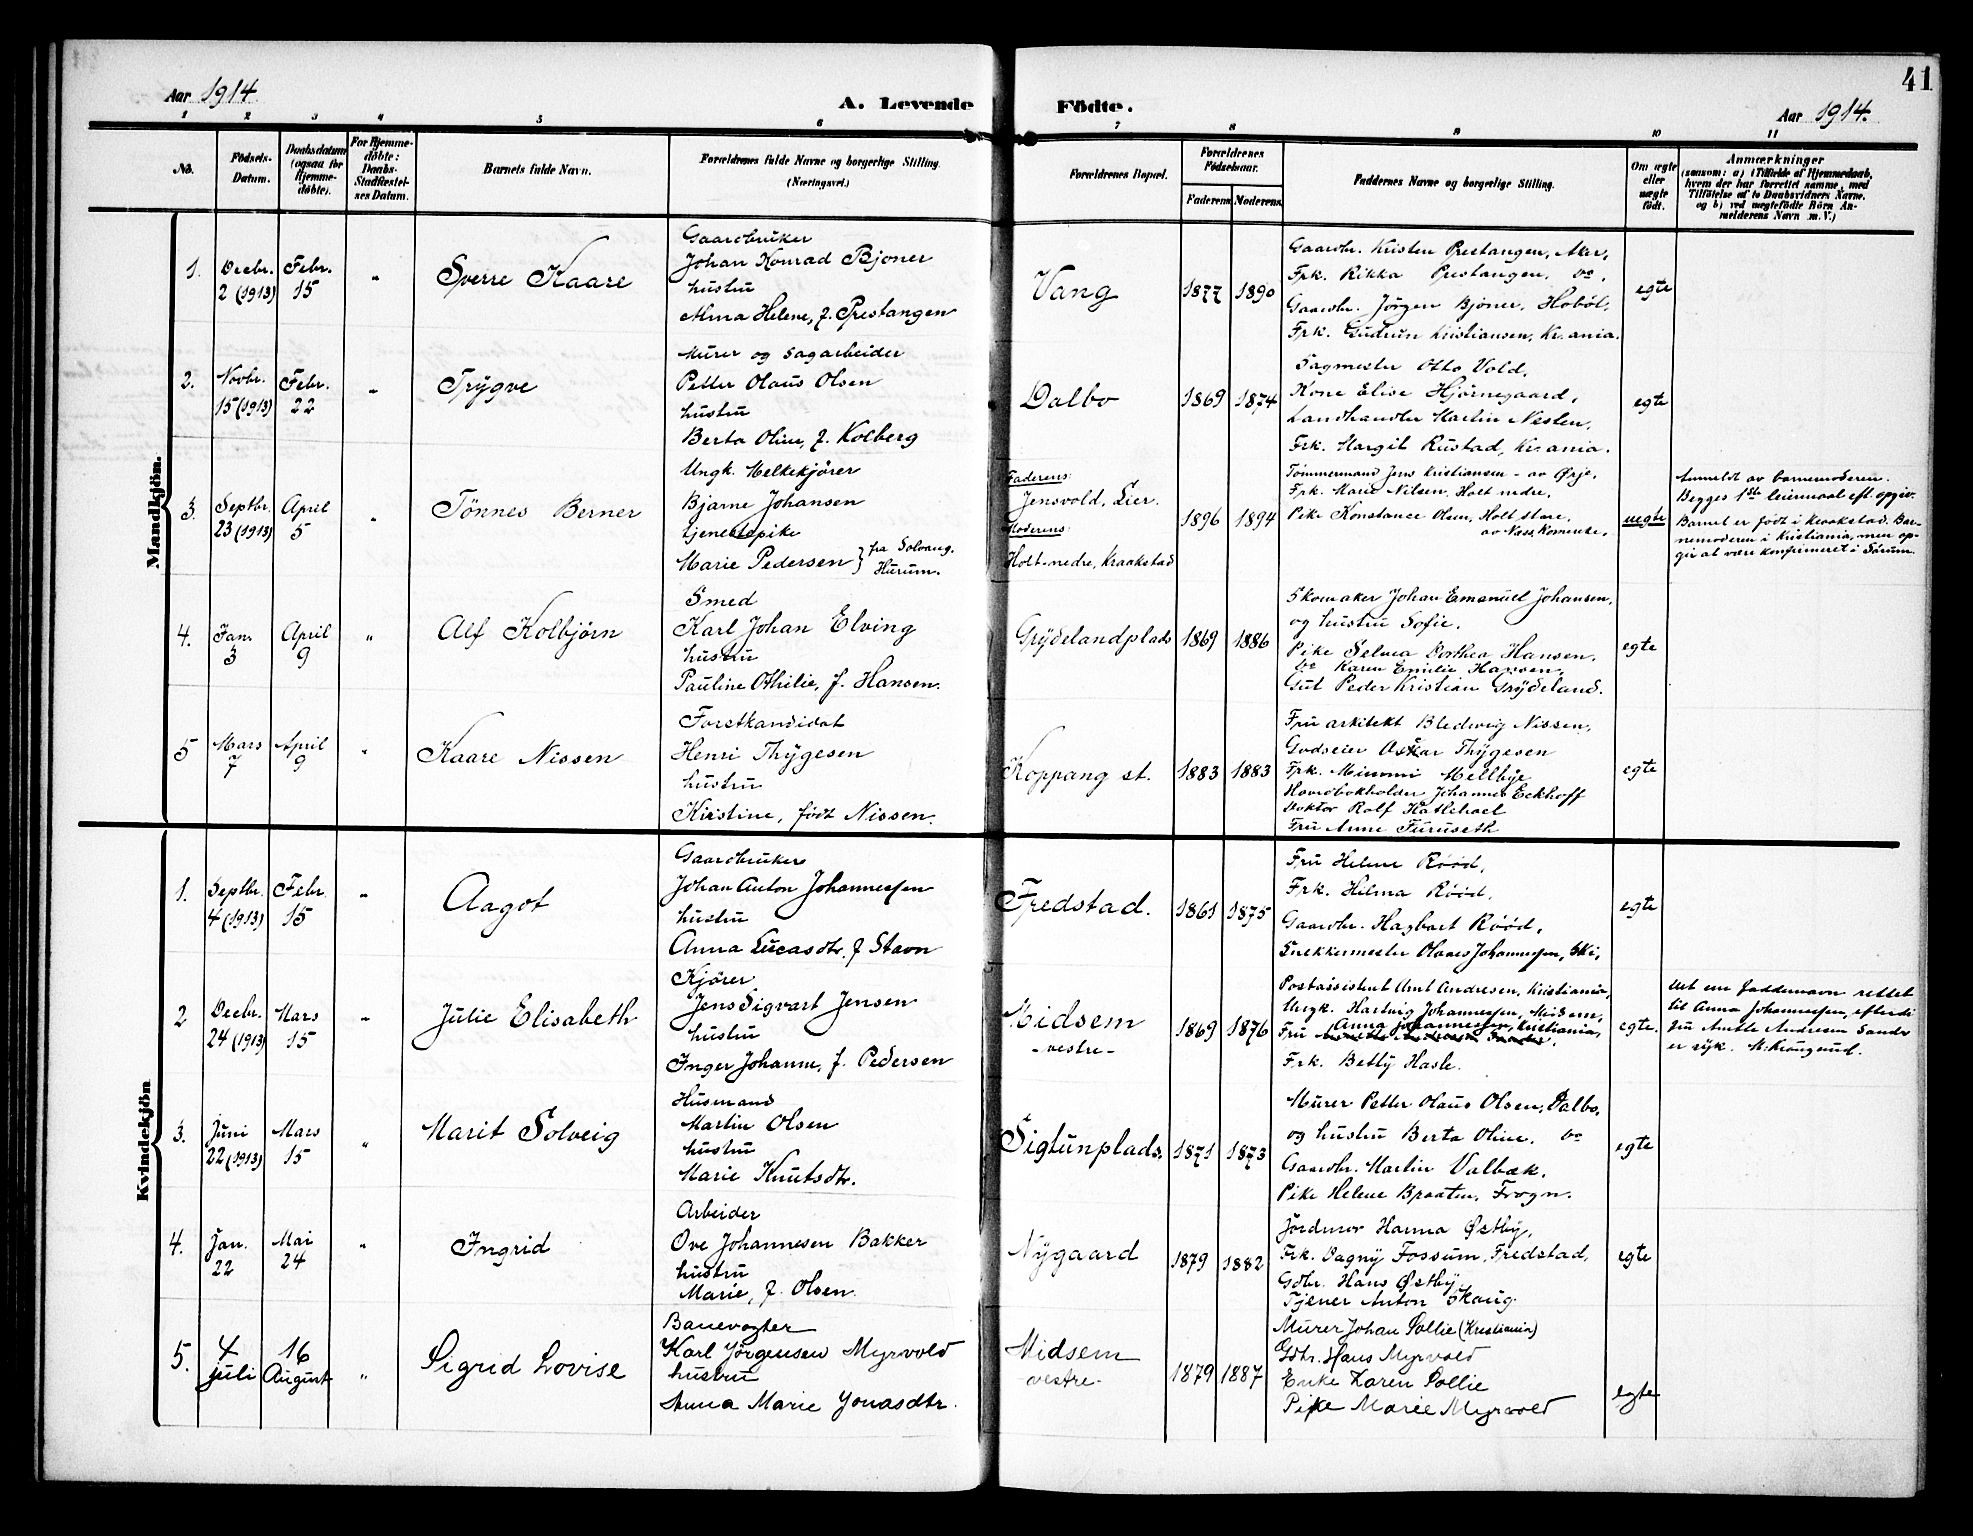 41
Aar 1914
A. Levende Födte.
Aar 1914.
1 2 3 4 5 6 7 8 9 10 11
No.
Födsels-
Datum.
Daabsdatum
(ogsaa for
Hjemme-
döbte).
For Hjemme-
döbte:
Daabs-
Stadfæstel-
ses Datum.
Barnets fulde Navn.
Forældrenes fulde Navne og borgerlige Stilling.
(Næringsvei.)
Forældrenes Bopæl.
Forældrenes
Födselsaar.
Faderens Moderens
Faddernes Navne og borgerlige Stilling.
Om ægte
eller
uægte
födt.
Anmærkninger
(saasom: a) i Tilfælde af Hjemmedaab,
hvem der har forrettet samme, med
Tilföielse af to Daabsvidners Navne,
og b) ved uægtefödte Börn An-
melderens Navn m. V.)
Mandkjön.
1.
Decbr.
2 (1913)
Febr.
15
"
Sverre Kaare
Gaardbruker
Johan Konrad Bjoner
hustru
Alma Helene, f. Prestangen
Vang
1877 1890
Gaardbr. Kristen Prestangen, Aker,
Frk. Rikka Prestangen, do,
Gaardbr. Jörgen Bjoner, Hoböl,
Frk. Gudrun Kristiansen, Kr.ania.
egte
2.
Novbr.
15 (1913)
Febr.
22
"
Trygve
Murer og sagarbeider
Petter Olaus Olsen
hustru
Berta Oline, f. Kolberg
Dalbo
1869 1874
Sagmester Otto Vold,
Kone Elise Hjörnegaard,
Landhandler Martin Nesten,
Frk. Margit Rustad, Kr.ania.
egte
3.
Septbr.
23 (1913)
April
5
"
Tönnes Berner
Ungk. Melkekjörer
Bjarne Johansen
tjenestepike
Marie Pedersen } fra Solvang,
Hurum.
Faderens:
Jensvold, Lier.
Moderens:
Holt-nedre, Kraakstad
1896 1894
Tömmermand Jens Kristiansen - av Örje,
Frk. Marie Nilsen, Holt nedre,
Pike Konstance Olsen, Holt store,
av Næs, Romerike.
uegte
Anmeldt av barnemoderen.
Begges 1ste leiermaal eft. opgiv.
Barnet er födt i Kraakstad. Bar-
nemoderen i Kristiania, men op-
gir at være konfirmeret i Sörum.
4.
Jan.
3
April
9
"
Alf Kolbjörn
Smed
Karl Johan Elving
hustru
Pauline Othilie, f. Hansen.
Grydelandplads
1869 1886
Skomaker Johan Emanuel Johansen,
og hustru Sofie.
Pike Selma Dorthea Hansen,
do Karen Emilie Hansen,
Gut Peder Kristian Grydeland.
egte
5
Mars
7
April
9
"
Kaare Nissen
Forstkandidat
Henri Thygesen
hustru
Kirstine, födt Nissen.
Koppang st.
1883 1883
Fru arkitekt Bledwig Nissen,
Godseier Oskar Thygesen
Frk. Mimmi Mellbye
Hovedbokholder Johannes Eckhoff
Doktor Rolf Hatlehoel
Fru Anne Furuseth
egte
Kvindekjön
1.
Septbr.
4 (1913)
Febr.
15
"
Aagot
Gaardbruker
Johan Anton Johannessen
hustru
Anna Lucasdtr. f Stavn
Fredstad.
1861 1875
Fru Helene Rööd,
Frk. Hilma Rööd,
Gaardbr. Hagbart Rööd,
Snekkermester Olaves Johannessen, Ski,
egte
2
Decbr.
24 (1913)
Mars
15
"
Julie Elisabeth
Kjörer
Jens Sigvart Jensen
hustru
Inger Johanne, f. Pedersen
Midsem
- vestre -
1869 1876
Postassistent Amt Andresen, Kristiania,
Ungk. Hartvig Johannessen, Midsem,
Anna Johannessen, Kristiania,
Fru
Frk. Betty Hasle.
egte.
Det ene faddernavn rettet
til Anna Johannessen, efterdi
fru Anette Andresen Sander
er syk. M. Krougsrud.
3.
Juni
22 (1913)
Mars
15
"
Marit Solveig
Husmand
Martin Olsen
hustru
Marie Knutsdtr.
Sigtunplads,
1871 1873
Murer Petter Olaus Olsen, Dalbo,
og hustru Berta Oline, do
Gaardbr. Martin Valbæk,
Pike Helene Braaten, Frogn.
egte
4.
Jan.
22
Mai
24
"
Ingrid
Arbeider
Ove Johannesen Bakker
hustru
Marie, f. Olsen.
Nygaard
1879 1882
Jordmor Hanna Østby,
Frk. Dagny Fossum, Fredstad,
Gdbr. Hans Østby
Tjener Anton Skaug.
egte
5.
4
juli
16
August
"
Sigrid Lovise
Banevogter
Karl Jørgensen Myrvold
hustru
Anna Marie Jonasdtr.
Midsem
- vestre -
1879 1887
Murer Johan Sollie (Kristiania)
Gdbr. Hans Myrvold
Enke Karen Sollie
Pike Marie Myrvold
egte